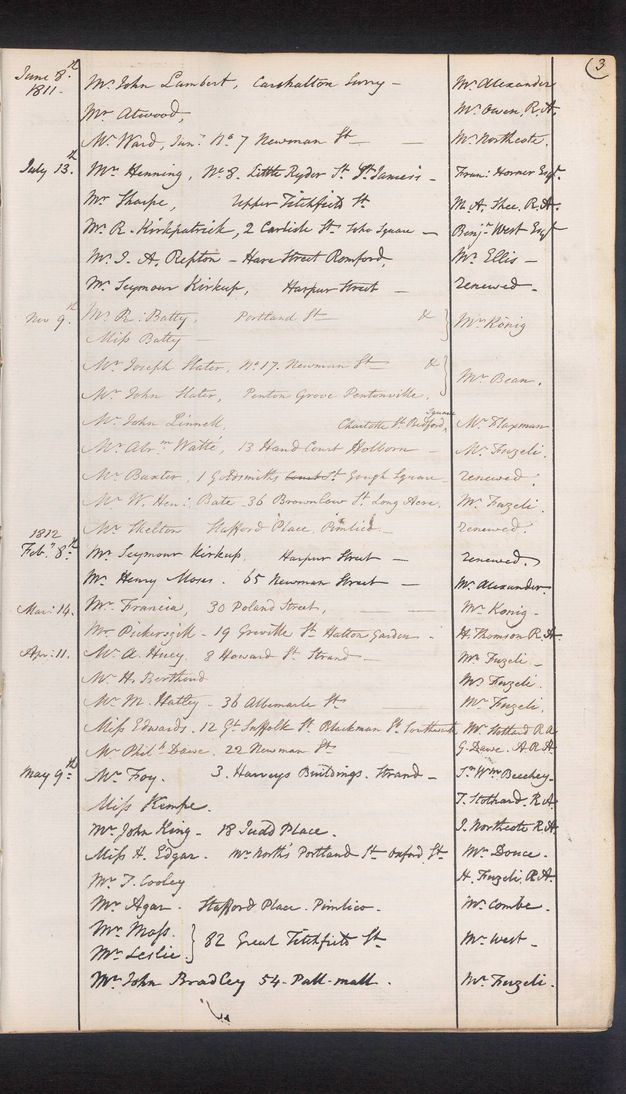 3
June 8th 1811- Mr John Lambert, Carshalton Surry - Mr Alexander
Mr Atwood, Mr Owen, R.A.
Mr Ward, Junr No 7 Newman St - - Mr Northcote.
July 13th Mr Henning, No 8. Little Ryder St St James's - Fran: Horner Esqr.
Mr Sharpe, Upper Titchfield St M. A. Shee, R.A.
Mr R. Kirkpatrick, 2 Carlisle St Soho Square - Benjn West Esqr
Mr J. A. Repton - Hare Street Romford, Mr Ellis -
Mr Seymour Kirkup, Harpur Street - renewed -
Nov 9th Mr R: Batty, Portland St & } Mr König
Miss Batty -
Mr Joseph Slater, No 17. Newman St - & } Mr Bean.
Mr John Slater, Penton Grove Pentonville,
Mr John Linnell, Charlotte St Bedford Square, Mr Flaxman
Mr Abrm Watté, 13 Hand Court Holborn - Mr Fuzeli.
Mr Baxter, 1 Goldsmiths Court St Gough Square renewed.
Mr W. Hen: Bate 36 Brownlow St Long Acre. Mr Fuzeli.
Mr Skelton Stafford Place, Pimlico - renewed.
1812
Feby 8th Mr Seymour Kirkup, Harpur Street - renewed.
Mr Henry Moses. 65 Newman Street - Mr Alexander.
Mar: 14. Mr Francia, 30 Poland Street, Mr Konig -
Mr Pickersgill - 19 Greville St Hatton Garden - H. Thomson R.A.
Apr: 11. Mr A. Huey. 8 Howard St Strand - Mr Fuzeli -
Mr H. Berthoud Mr Fuzeli.
Mr M. Hatley - 36 Albemarle St Mr Fuzeli.
Miss Edwards. 12 Gt Suffolk St Blackman St Southwark, Mr Stothard R.A.
Mr Phil: Dawe. 22 Newman St G. Dawe. A.R.A.
May 9th Mr Foy. 3. Harveys Buildings. Strand - Sr Wm Beechey -
Miss Kempe. T. Stothard. R.A.
Mr John King - 18 Judd Place. J. Northcote R.A.
Miss H. Edgar. Mr North's Portland St Oxford St Mr Douce.
Mr T. Cooley H. Fuzeli, R.A.
Mr Agar. Stafford Place. Pimlico. Mr Combe.
Mr Moss. } 82 Great Titchfield St Mr West -
Mr Leslie
Mr John Bradley 54 - Pall-mall. Mr Fuzeli.